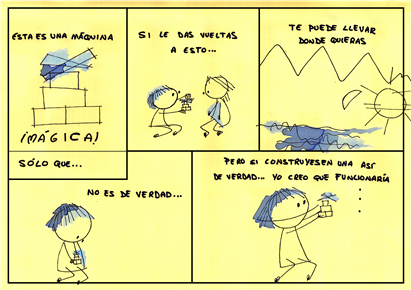 ESTA ES UNA MÁQUINA
¡MÁGICA!
SI LE DAS VUELTAS
A ESTO...
TE PUEDE LLEVAR
DONDE QUIERAS
SÓLO QUE...
NO ES DE VERDAD...
PERO SI CONSTRUYESEN UNA ASÍ
DE VERDAD... YO CREO QUE FUNCIONARÍA